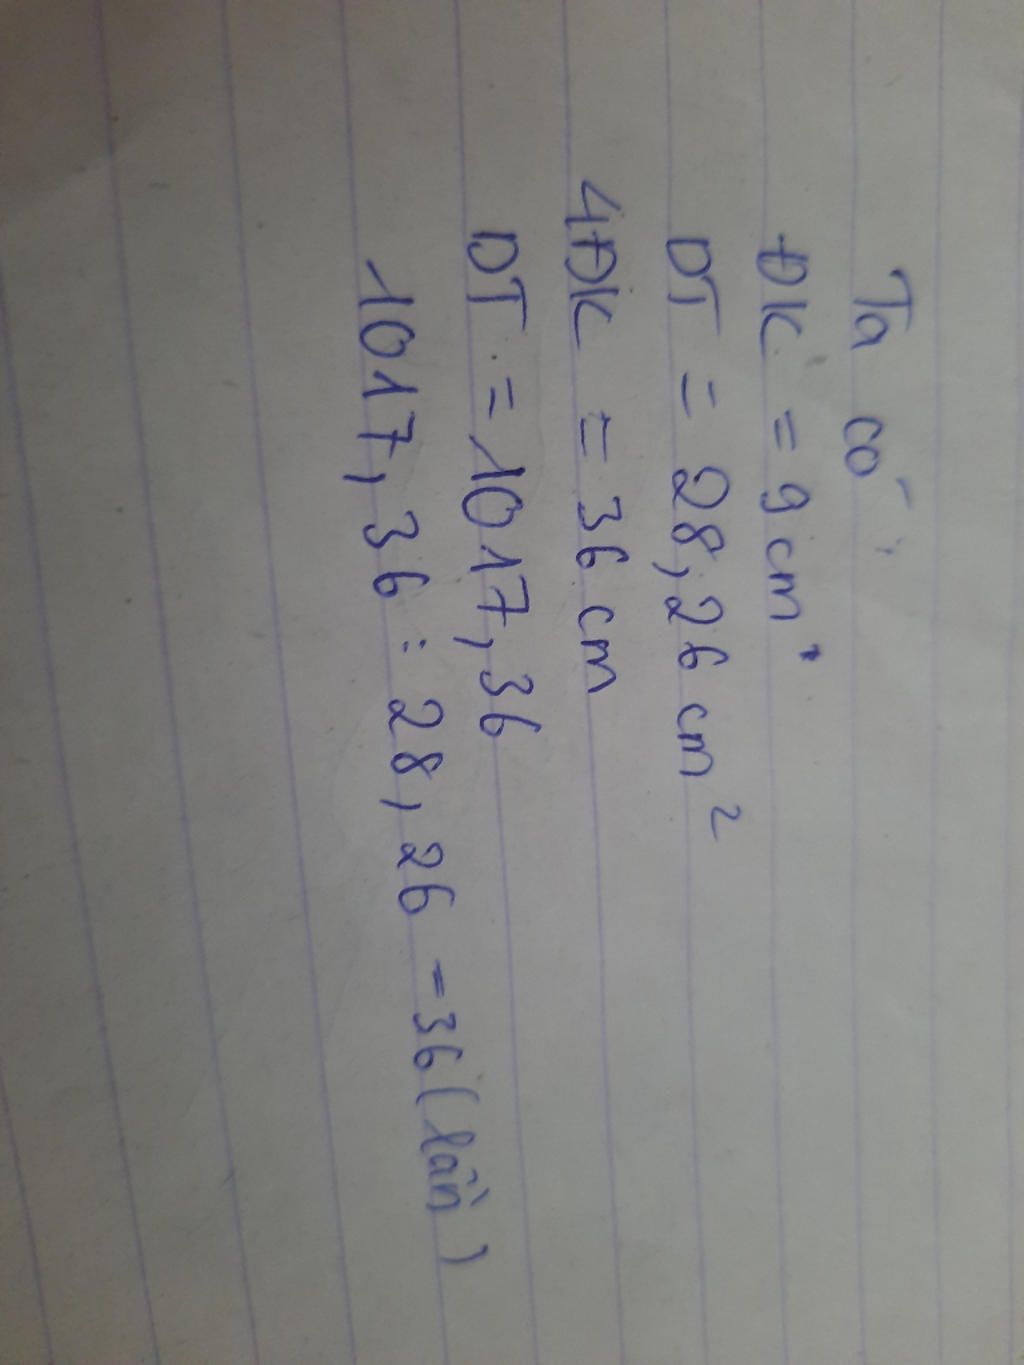 Ta có:
ĐK = 9 cm
DT = 28,26 cm²
4ĐK = 36 cm
DT = 1017,36
1017,36 : 28,26 = 36 (lần)